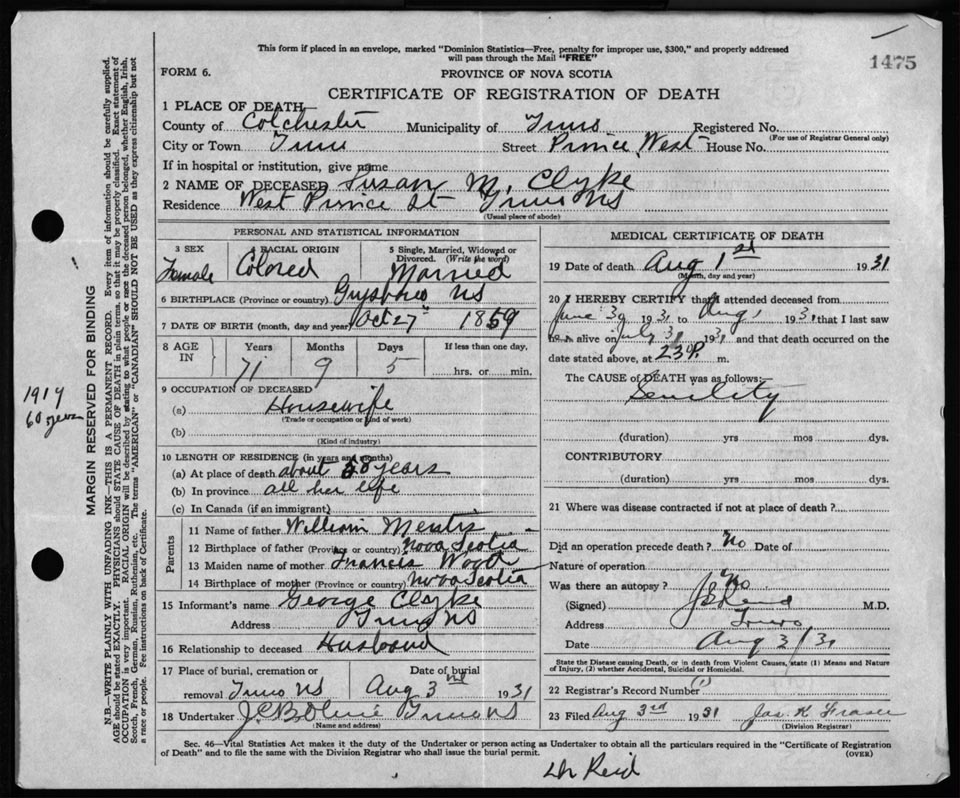 This form if placed in an envelope, marked "Dominion Statistics—Free, penalty for improper use, $300," and properly addressed
will pass through the Mail "FREE"
1475
FORM 6.
PROVINCE OF NOVA SCOTIA
CERTIFICATE OF REGISTRATION OF DEATH
1 PLACE OF DEATH—
County of Colchester Municipality of Truro Registered No.
(For use of Registrar General only)
City or Town Truro Street Prince West House No.
If in hospital or institution, give name
2 NAME OF DECEASED Susan M. Clyke
Residence West Prince St Truro NS
(Usual place of abode)
PERSONAL AND STATISTICAL INFORMATION
3 SEX 4 RACIAL ORIGIN 5 Single, Married, Widowed or
Divorced. (Write the word)
Female Colored Married
6 BIRTHPLACE (Province or country) Guysboro NS
7 DATE OF BIRTH (month, day and year) Oct 27th 1859
8 AGE IN Years Months Days If less than one day.
71 9 5 hrs. or min.
9 OCCUPATION OF DECEASED
(a) Housewife
(Trade or occupation or kind of work)
(b)
(Kind of industry)
10 LENGTH OF RESIDENCE (in years and months)
(a) At place of death about 58 years
(b) In province all her life
(c) In Canada (if an immigrant)
Parents
11 Name of father William
12 Birthplace of father (Province or country) Nova Scotia
13 Maiden name of mother Francis
14 Birthplace of mother (Province or country) Nova Scotia
15 Informant's name George Clyke
Address Truro NS
16 Relationship to deceased Husband
17 Place of burial, cremation or Date of burial
removal Truro NS Aug 3rd 1931
18 Undertaker Truro NS
(Name and address)
MEDICAL CERTIFICATE OF DEATH
19 Date of death Aug 1st 1931
(Month, day and year)
20 I HEREBY CERTIFY that I attended deceased from
June 30 1931 to Aug 1 1931 that I last saw
h alive on July 31 1931 and that death occurred on the
date stated above, at P. m.
The CAUSE of DEATH was as follows:—
Senility
(duration) yrs mos dys.
CONTRIBUTORY
(duration) yrs mos dys.
21 Where was disease contracted if not at place of death?
Did an operation precede death? No Date of
Nature of operation
Was there an autopsy? No
(Signed) Reid M.D.
Address Truro
Date Aug 3/31
State the Disease causing Death, or in death from Violent Causes, state (1) Means and Nature
of Injury, (2) whether Accidental, Suicidal or Homicidal.
22 Registrar's Record Number
23 Filed Aug 3rd 1931 Jas K Fraser
(Division Registrar)
Sec. 46—Vital Statistics Act makes it the duty of the Undertaker or person acting as Undertaker to obtain all the particulars required in the "Certificate of Registration
of Death" and to file the same with the Division Registrar who shall issue the burial permit.
(OVER)
Dr Reid
1914
60 years
MARGIN RESERVED FOR BINDING
N.B.—WRITE PLAINLY WITH UNFADING INK—THIS IS A PERMANENT RECORD. Every item of information should be carefully supplied.
AGE should be stated EXACTLY. PHYSICIANS should STATE CAUSE OF DEATH in plain terms, so that it may be properly classified. Exact statement of
OCCUPATION is very important. RACIAL ORIGIN will be described by stating to what people or race the deceased person belonged, whether English, Irish,
Scotch, French, German, Russian, Ruthenian, etc. The terms "AMERICAN" or "CANADIAN" SHOULD NOT BE USED as they express citizenship but not
a race or people. See instructions on back of Certificate.